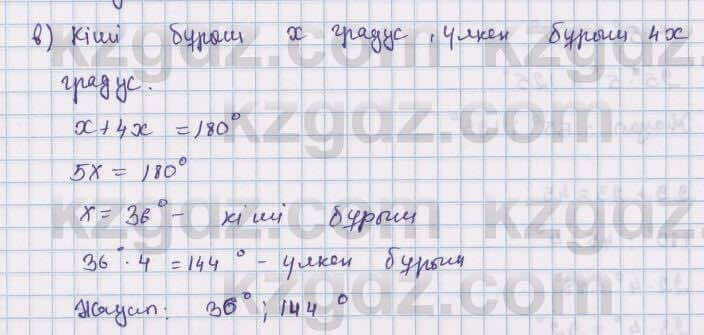 в) Кіші бұрыш x градус, үлкен бұрыш 4x
градус.
x+4x = 180°
5x = 180°
x = 36° - кіші бұрыш
36° · 4 = 144° - үлкен бұрыш
Жауап: 36°; 144°
kzgdz.com
kzgdz.com
kzgdz.com
kzgdz.com